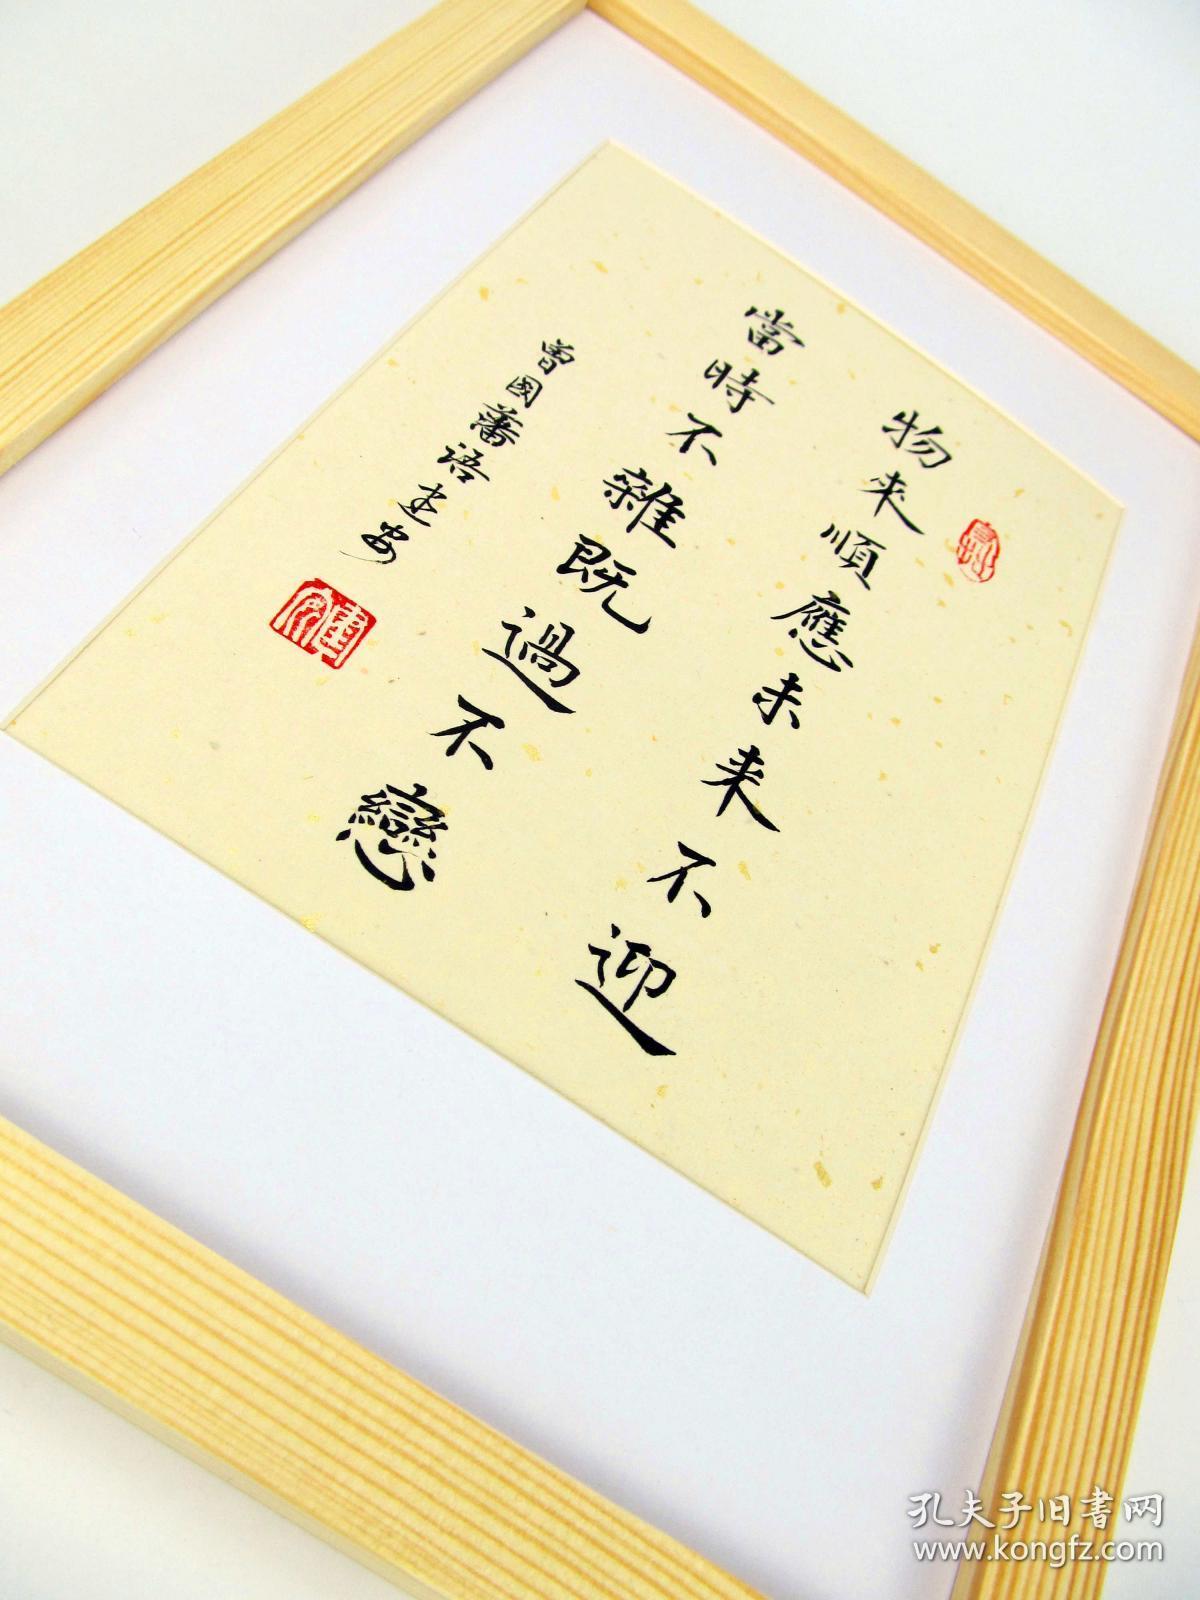 物来順應未来不迎
當時不雜既過不戀
曾國藩语建安
孔夫子旧書网
www.kongfz.com